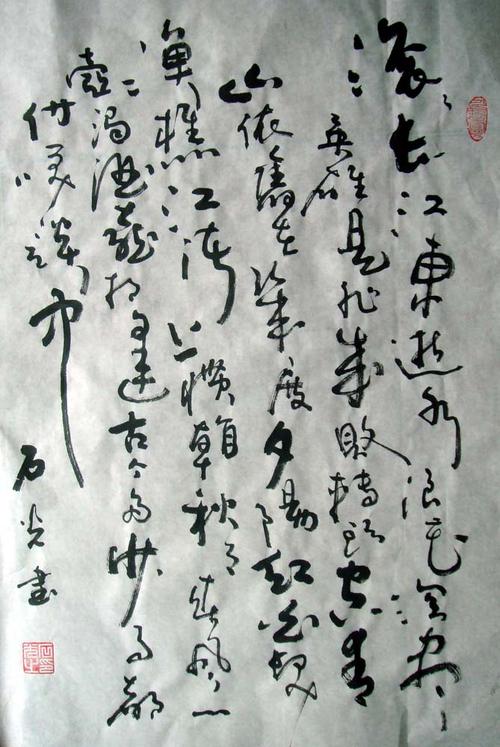 滚滚长江東逝水浪花淘尽
英雄是非成敗轉头空青
山依舊在幾度夕陽红白髮
漁樵江渚上惯看秋月春風一
壶浊酒喜相逢古今多少事都
付笑谈中
石光書